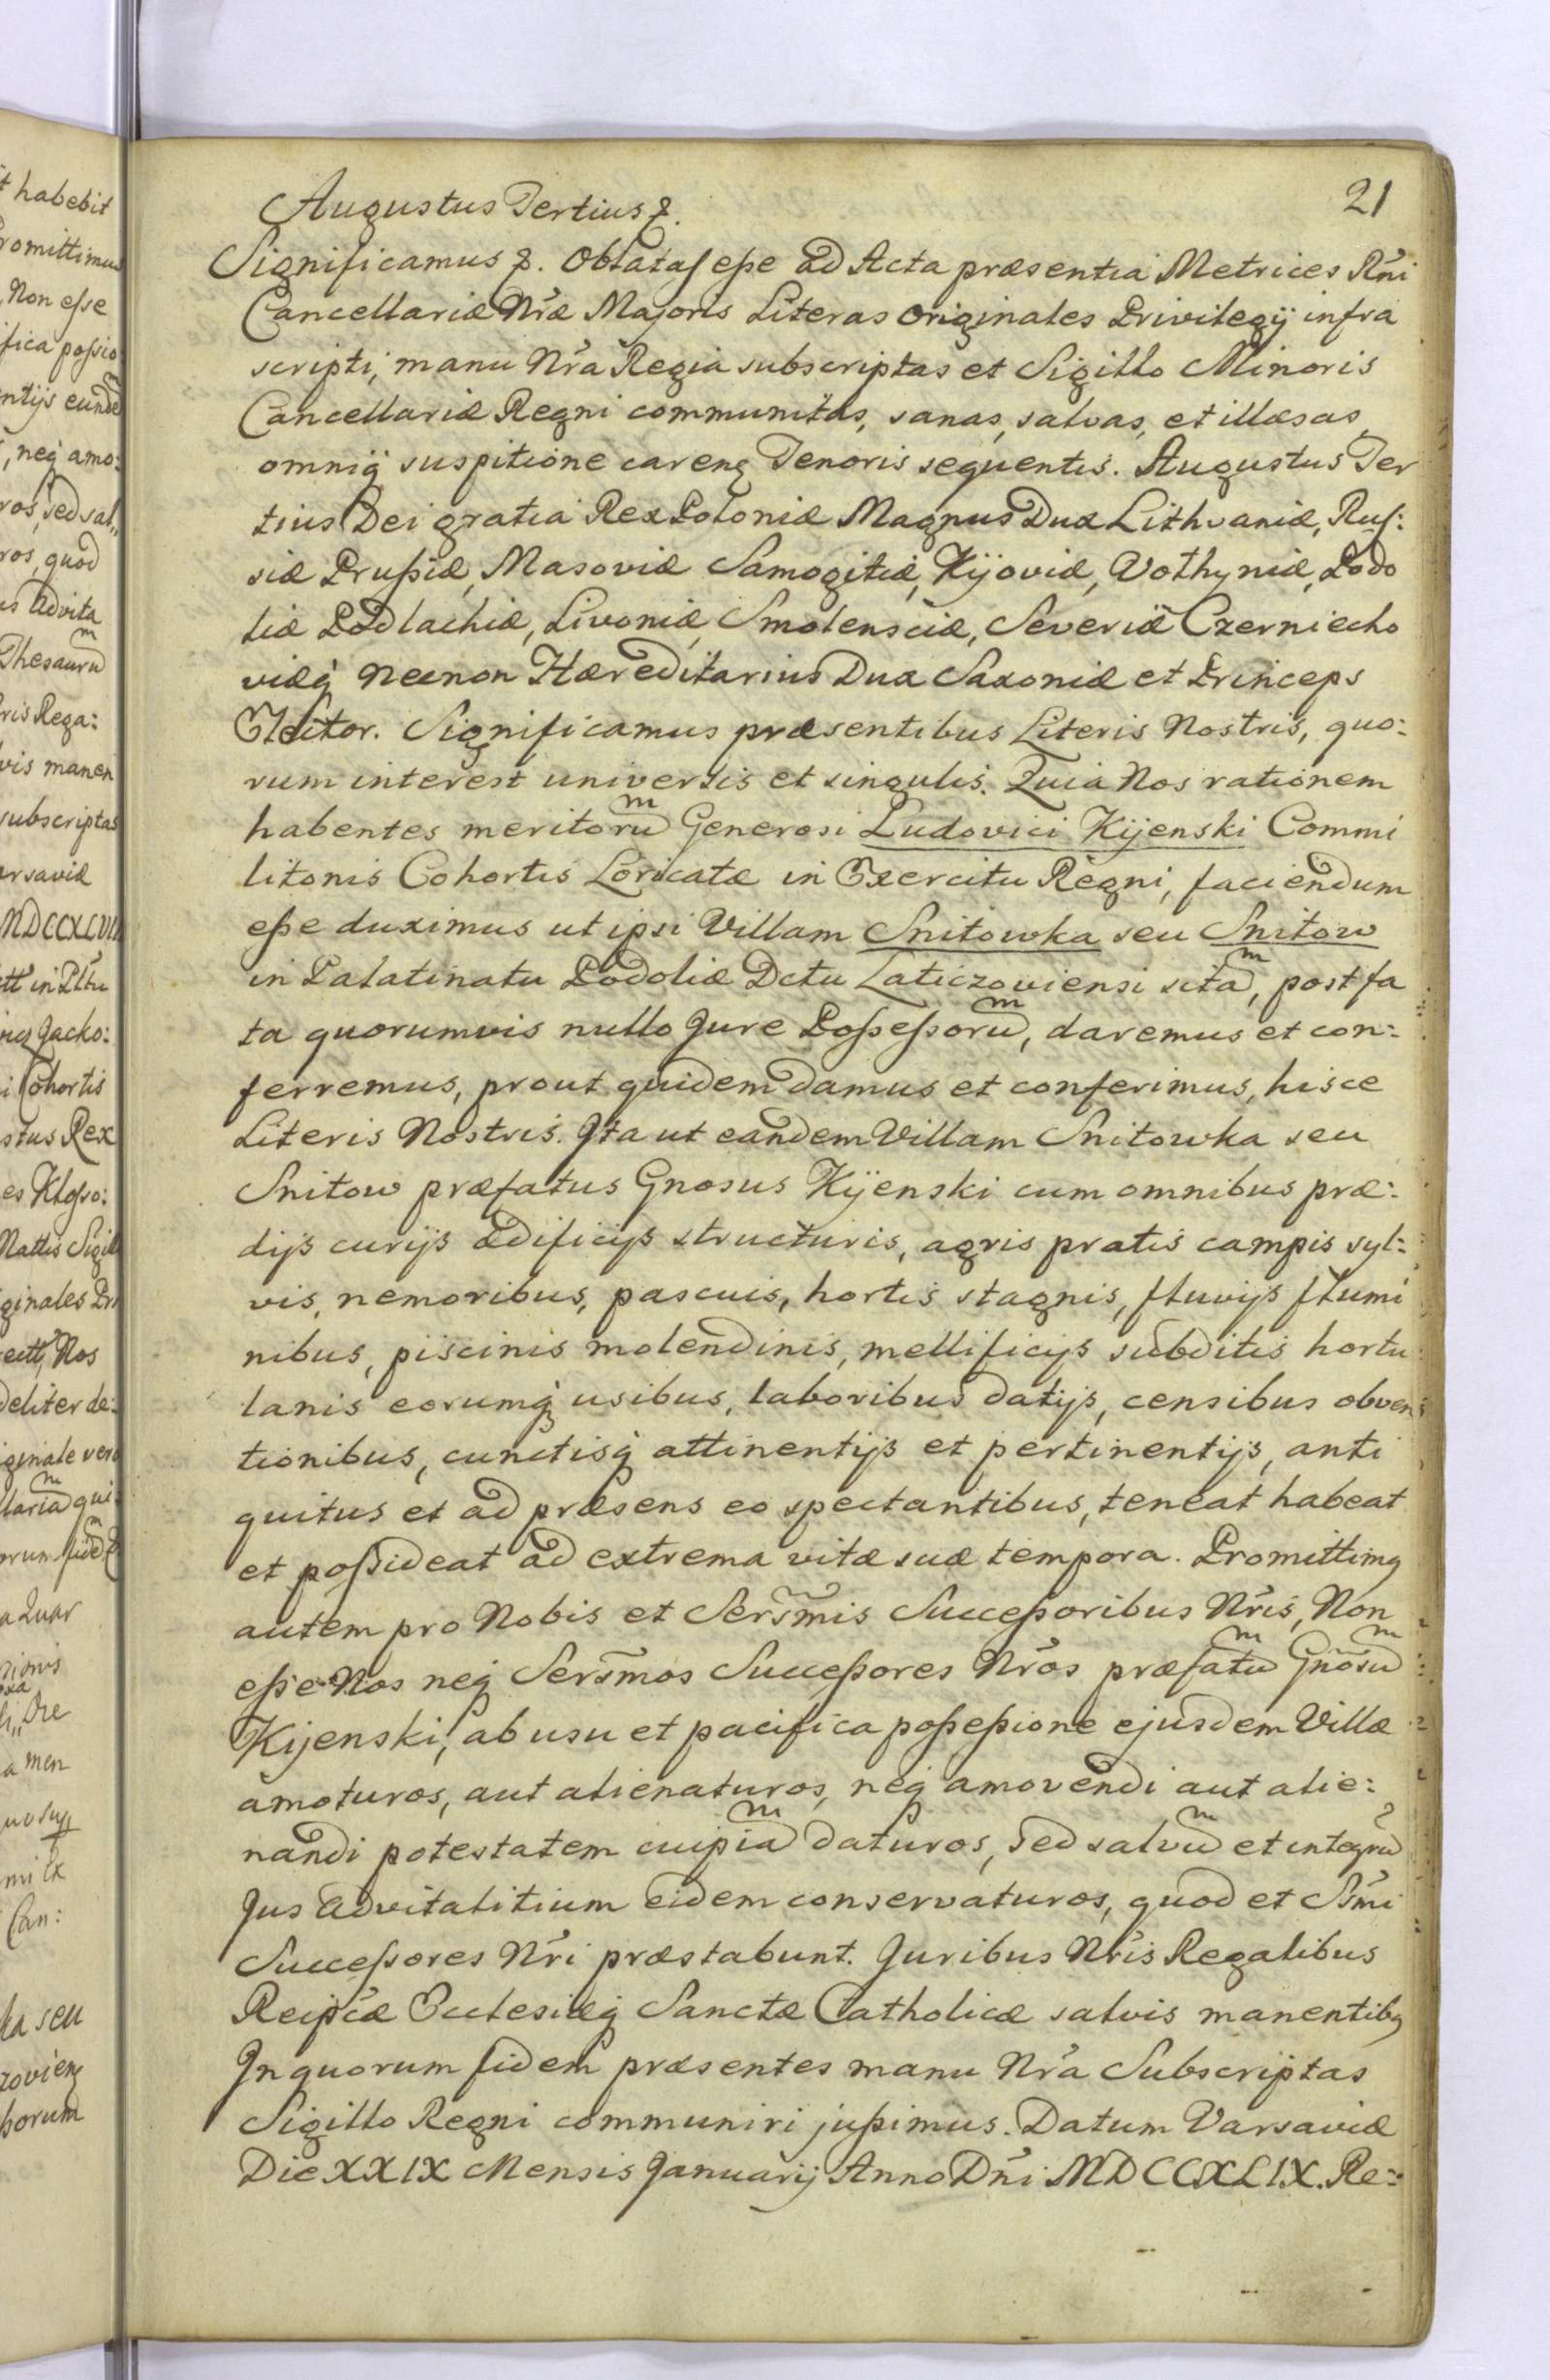 21
Augustus Tertius &.
Significamus &. Oblatas esse ad Acta præsentia Metrices Rńi
Cancellariæ Nŕæ Majoris Literas originales Privilegij infra
scripti, manu Nŕa Regia subscriptas et Sigillo Minoris
Cancellariæ Regni communitas, sanas, salvas, et illæsas,
omniq́ suspitione careng Tenoris sequentis. Augustus Ter
tius Dei gratia Rex Poloniæ Magnus Dux Lithvaniæ, Rus:
siæ Prussiæ, Masoviæ Samogitiæ, Kijoviæ, Volhyniæ, Podo
liæ Podlachiæ, Livoniæ, Smolensciæ, Severiæ Czerniecho
viæq́ necnon Hæreditarius Dux Saxoniæ et Princeps
Elector. Significamus præsentibus Literis Nostris, quo:
rum interest universis et singulis. Quia Nos rationem
habentes meritoruͫ Generosi Ludovici Kijenski Commi
litonis Cohortis Loricatæ in Exercitu Regni, faciendum
esse duximus ut ipsi Villam Snitowka seu Snitow
in Palatinatu Podoliæ Dctu Laticzoviensi sitaͫ, post fa
ta quorumvis nullo Jure Possessoruͫ, daremus et con:
ferremus, prout quidem damus et conferimus, hisce
Literis Nostris. Ita ut eandem Villam Snitowka seu
Snitow præfatus Gnosus Kijenski cum omnibus præ:
dijs curijs ædificijs structuris, agris pratis campis syl:
vis, nemoribus, pascuis, hortis stagnis, fluvijs flumi
nibus, piscinis molendinis, mellificijs subditis hortu
lanis eorumq́ usibus, laboribus datijs, censibus obven
tionibus, cunctisq́ attinentijs et pertinentijs, anti
quitus et ad præsens eo spectantibus, teneat habeat
et possideat ad extrema vitæ suæ tempora. Promittimg
autem pro Nobis et Serm̃is Successoribus Nŕis, Non
esse Nos neq́ Serm̃os Successores Nŕos præfatuͫ Gnõsuͫ
Kijenski, ab usu et pacifica possessione ejusdem Villæ
amoturos, aut alienaturos, neq́ amovendi aut alie:
nandi potestatem cuipiaͫ daturos, sed salvuͫ et integruͫ
Jus advitalitium eidem conservaturos, quod et Sm̃i
Successores Nŕi præstabunt. Juribus Nŕis Regalibus
Reipcæ Ecclesiæq́ Sanctæ Catholicæ salvis manentibg
In quorum fidem præsentes manu Nŕa Subscriptas
Sigillo Regni communiri jussimus. Datum Varsaviæ
Die XXIX Mensis Januarij Anno Dńi MDCCXLIX. Re:
t habebit
romittimus
Non esse
ifica possio
entijs eundeͫ
, neq́ amo:
ros, sed sal„
ros, quod
us advita
Thesauruͫ
ris Rega:
vis manen
subscriptas
arsaviæ
MDCCXLVII
Jacko:
i Cohortis
stus Rex
es Klosso:
Nattis Sigill
ginales Pri
Nos
deliter de:
iginale vero
llariaͫ qui
a Quar
a men
Can:
ka seu
zovieng
sorum